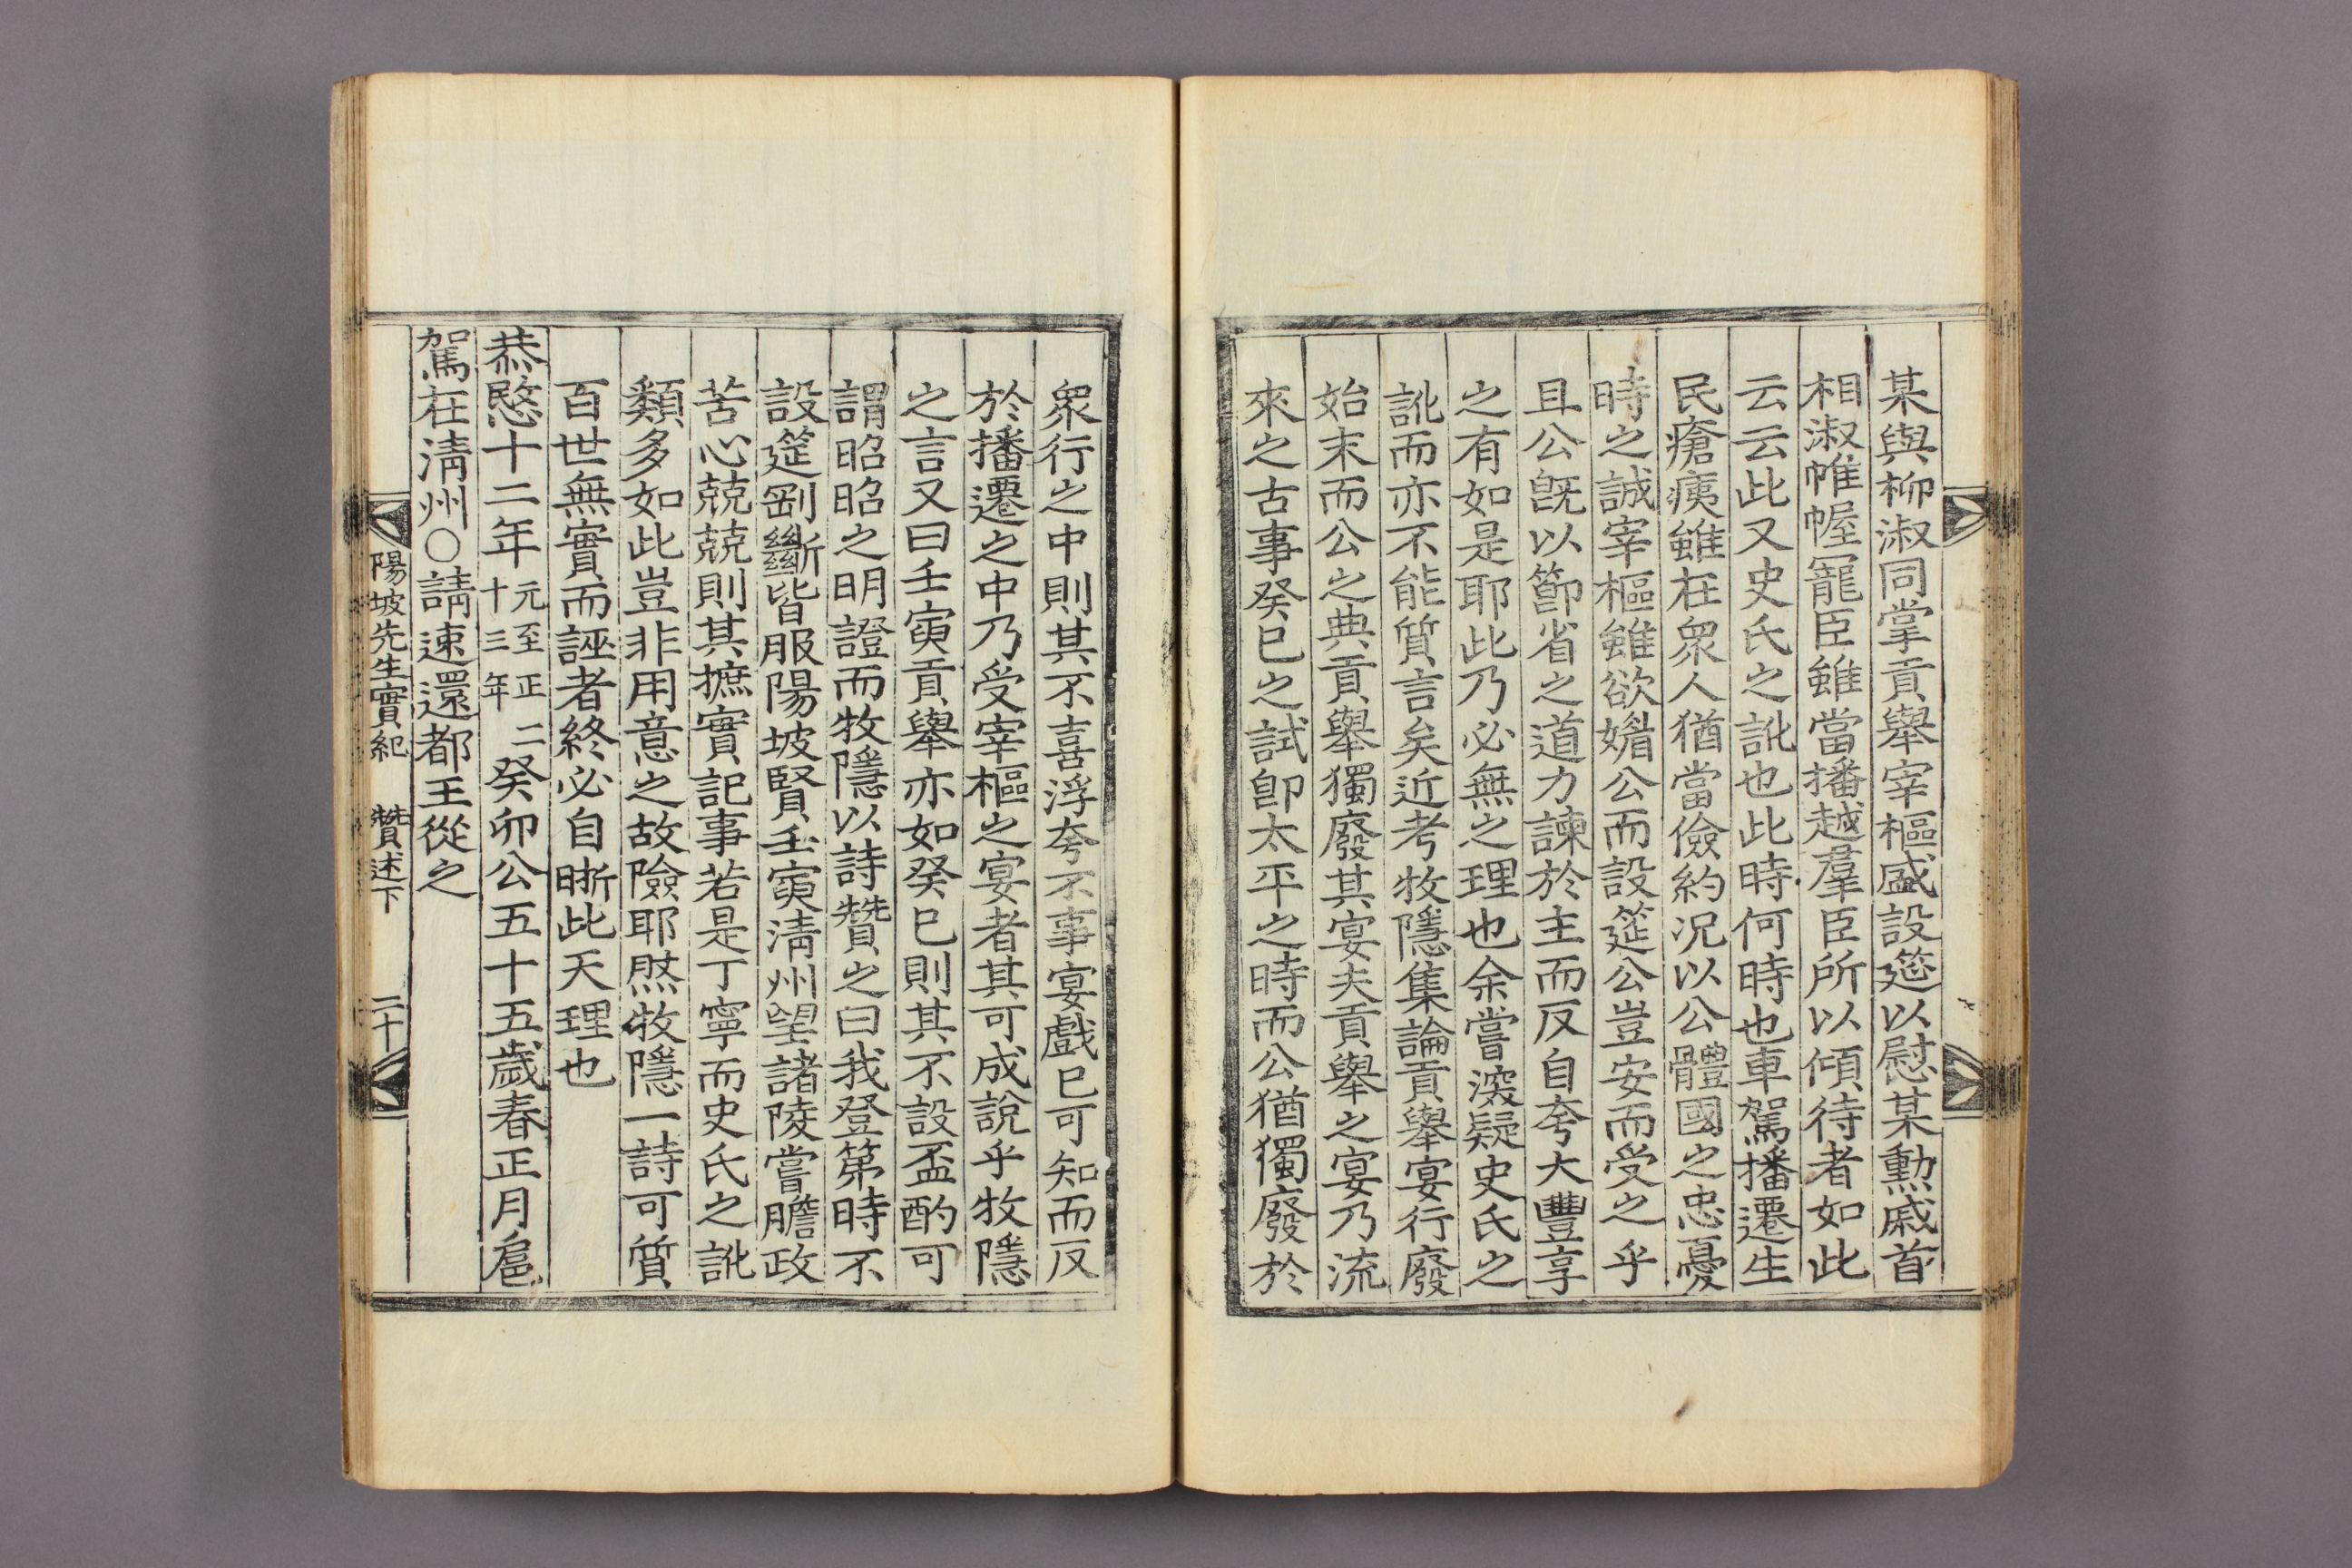 某與柳淑同掌貢舉宰樞盛設筵以慰某勳戚首
相淑帷幄寵臣雖當播越羣臣所以傾待者如此
云云此又史氏之訛也此時何時也車駕播遷生
民瘡痍雖在衆人猶當儉約況以公體國之忠憂
時之誠宰樞雖欲媚公而設筵公豈安而受之乎
且公旣以節省之道力諫於主而反自夸大豐享
之有如是耶此乃必無之理也余嘗深疑史氏之
訛而亦不能質言矣近考牧隱集論貢舉宴行廢
始末而公之典貢舉獨廢其宴夫貢舉之宴乃流
來之古事癸巳之試卽太平之時而公猶獨廢於
衆行之中則其不喜浮夸不事宴戲巳可知而反
於播遷之中乃受宰樞之宴者其可成說乎牧隱
之言又曰壬寅貢舉亦如癸巳則其不設盃酌可
謂昭昭之明證而牧隱以詩贊之曰我登第時不
設筵剛斷皆服陽坡賢壬寅淸州望諸陵嘗膽政
苦心兢兢則其摭實記事若是丁寧而史氏之訛
類多如此豈非用意之故險耶然牧隱一詩可質
百世無實而誣者終必自晣此天理也
恭愍十二年元至正二十三年癸卯公五十五歲春正月扈
駕在淸州○請速還都王從之
陽坡先生實紀 贊述下 二十